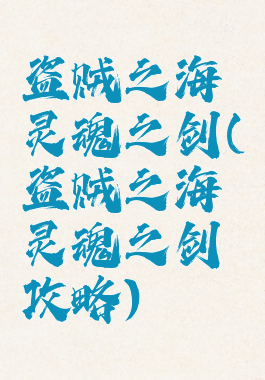 盗贼之海
灵魂之剑(
盗贼之海
灵魂之剑
攻略)